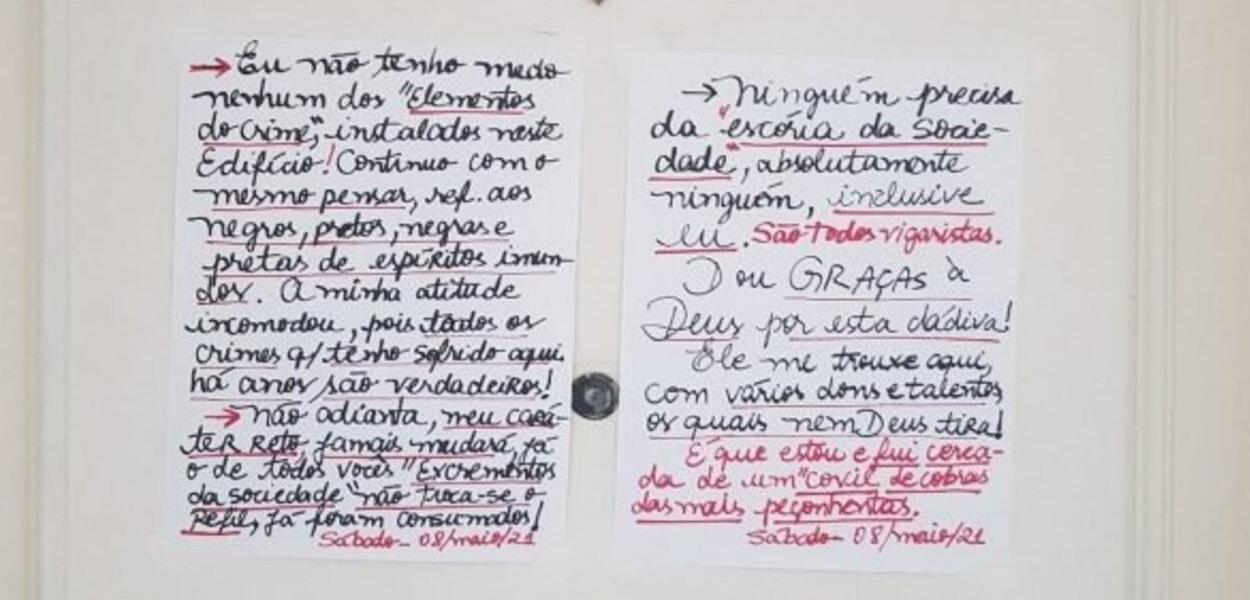 → Eu não tenho medo
nenhum dos "Elementos
do Crime", instalados neste
Edifício! Continuo com o
mesmo pensar, ref. aos
negros, pretos, negras e
pretas de espíritos imun-
dos. A minha atitude
incomodou, pois todos os
crimes q/ tenho sofrido aqui.
há anos, são verdadeiros!
→ Não adianta, meu cará-
teR Reto, jamais mudará, já
o de todos vocês "Excrementos
da sociedade" não troca-se o
Refil, já foram consumados!
Sábado - 08/maio/21
→ Ninguém precisa
da "escória da socie-
dade", absolutamente
ninguém, inclusive
eu. São todos vigaristas.
Dou GRAÇAS à
Deus por esta dádiva!
Ele me trouxe aqui,
com vários dons e talentos
os quais nem Deus tira!
É que estou e fui cerca-
da de um "covil de cobras
das mais peçonhentas.
Sábado - 08/maio/21